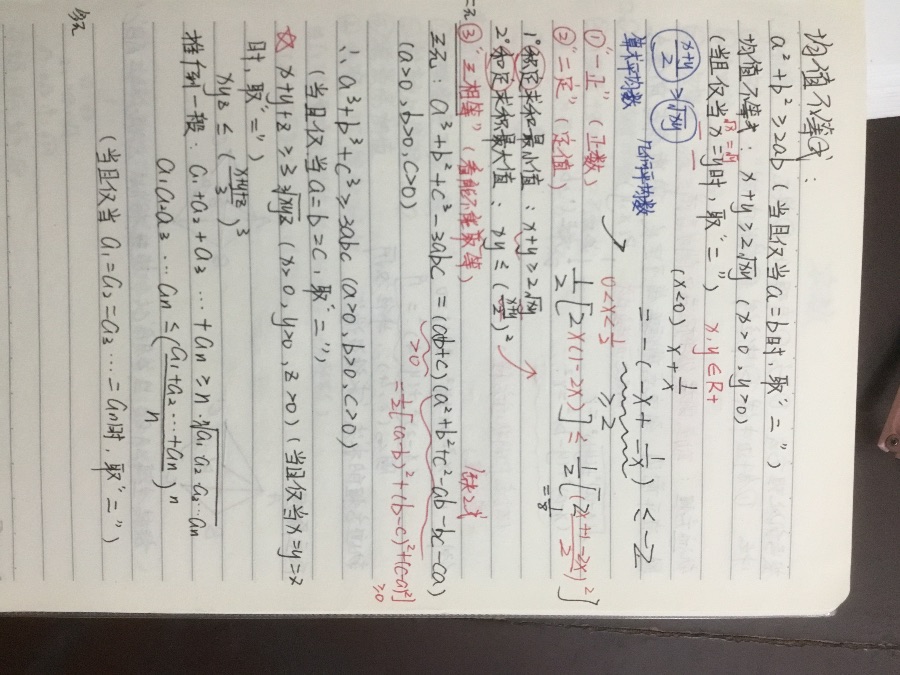 均值不等式:
a²+b²≥2ab (当且仅当a=b时,取"=")
均值不等式: x+y≥2√xy (x>0, y>0)
(当且仅当x=y时,取"=") x,y∈R+
√x=√y
x+y/2 ≥ √xy
算术平均数 几何平均数
(x<0) x+1/x
=-(-x+1/-x)≤-2
≥2
①"一正" (正数)
②"二定" (定值)
0<x<1/2
1/2[2x(1-2x)]≤1/2[(2x+1-2x/2)²]
=1/8
1°积定求和最小值: x+y≥2√xy
2°和定求积最大值: xy≤(x+y/2)²
二元
③"三相等" (看能不能取等)
三元: a³+b³+c³-3abc=(a+b+c)(a²+b²+c²-ab-bc-ca)
(a>0, b>0, c>0)
>0
=1/2[(a-b)²+(b-c)²+(c-a)²]
≥0
∴a³+b³+c³≥3abc (a>0, b>0, c>0)
(当且仅当a=b=c,取"=")
☆ x+y+z≥3³√xyz (x>0, y>0, z>0) (当且仅当x=y=z
时,取"=")
xyz≤(x+y+z/3)³
多元
推广到一般: a₁+a₂+a₃…+aₙ≥n·ⁿ√a₁a₂…aₙ
a₁a₂a₃…aₙ≤(a₁+a₂…+aₙ/n)ⁿ
(当且仅当a₁=a₂=a₃…=aₙ时,取"=")